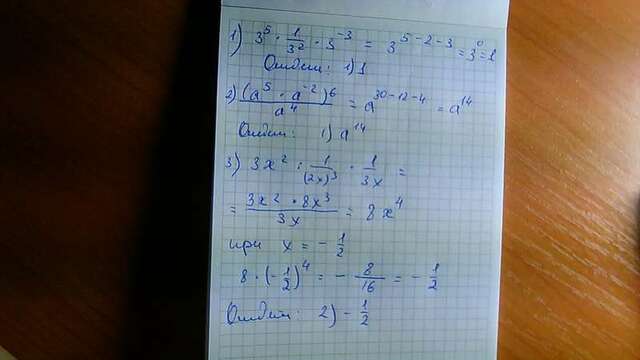 1) 3⁵ · 1/3² · 3⁻³ = 3⁵⁻²⁻³ = 3⁰ = 1
Ответ: 1) 1
2) (a⁵ · a⁻²)⁶/a⁴ = a³⁰⁻¹²⁻⁴ = a¹⁴
Ответ: 1) a¹⁴
3) 3x² : 1/(2x)³ · 1/3x =
= 3x² · 8x³/3x = 8x⁴
при x = - 1/2
8 · (- 1/2)⁴ = - 8/16 = - 1/2
Ответ: 2) - 1/2